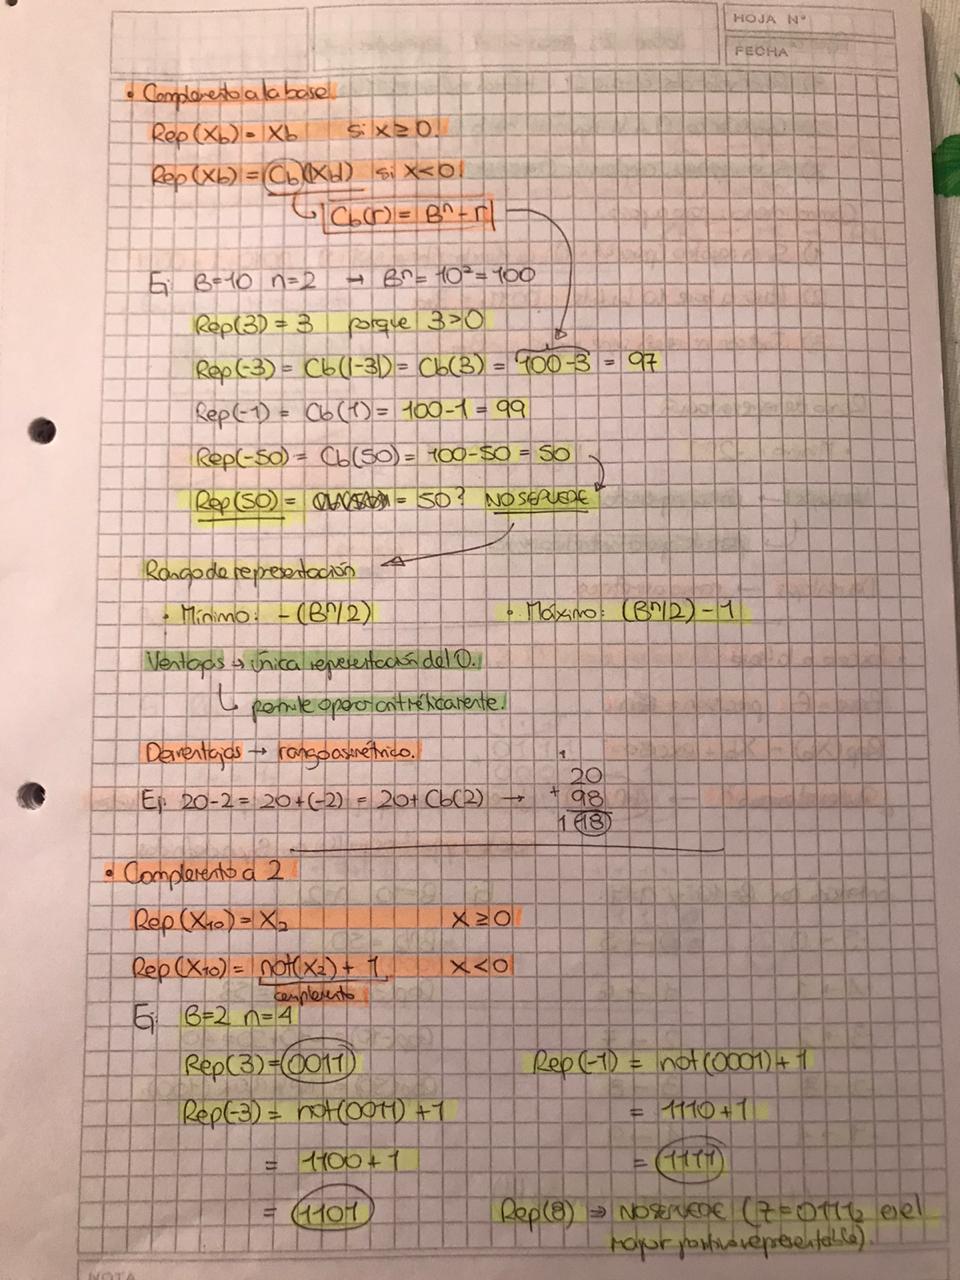 HOJA N°
FECHA
• Complemento a la base
Rep(Xb) = Xb si x ≥ 0.
Rep(Xb) = Cb(|Xb|) si x < 0
Cb(r) = Bⁿ - r
Ej B=10 n=2 → Bⁿ = 10² = 100
Rep(3) = 3 porque 3>0
Rep(-3) = Cb(|-3|) = Cb(3) = 100-3 = 97
Rep(-1) = Cb(1) = 100-1 = 99
Rep(-50) = Cb(50) = 100-50 = 50
Rep(50) = = 50? NO SE PUEDE
Rango de representación
• Mínimo: -(Bⁿ/2) • Máximo: (Bⁿ/2) - 1
Ventajas → única representación del 0.
↳ permite operar aritméticamente.
Desventajas → rango asimétrico.
1
20
Ej: 20-2 = 20+(-2) = 20+Cb(2) → + 98
1 18
• Complemento a 2
Rep(X₁₀) = X₂ x ≥ 0
Rep(X₁₀) = not(X₂) + 1 x < 0
complemento
Ej B=2 n=4
Rep(3) = 0011 Rep(-1) = not(0001) + 1
Rep(-3) = not(0011) + 1 = 1110 + 1
= 1100 + 1 = 1111
= 1101 Rep(8) → NO SE PUEDE (7 = 0111₂ es el
mayor positivo representable).
NOTA